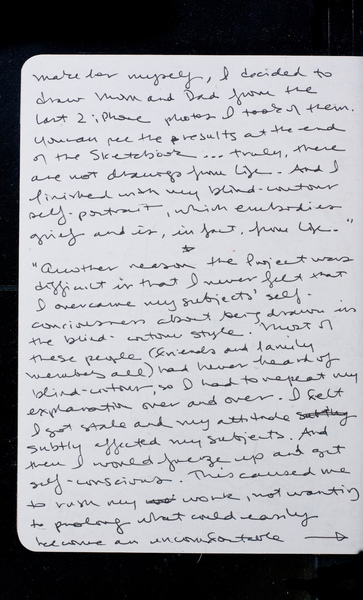 make for myself, I decided to
draw Mom and Dad from the
last 2 iphone photos I took of them.
You can see the results at the end
of the Sketchbook ... truly, these
are not drawings from life. And I
finished with my blind-contour
self-portrait, which embodies
grief and is, in fact, from life."
"Another reason the Project was
difficult is that I never felt that
I overcame my subjects' self-
consciousness about being drawn in
the blind-contour style. Most of
these people (friends and family
members all) had never heard of
blind-contour, so I had to repeat my
explanation over and over. I felt
I got stale and my attitude
subtly affected my subjects. And
then I would freeze up and get
self-conscious. This caused me
to rush my work, not wanting
to prolong what could easily
become an uncomfortable →